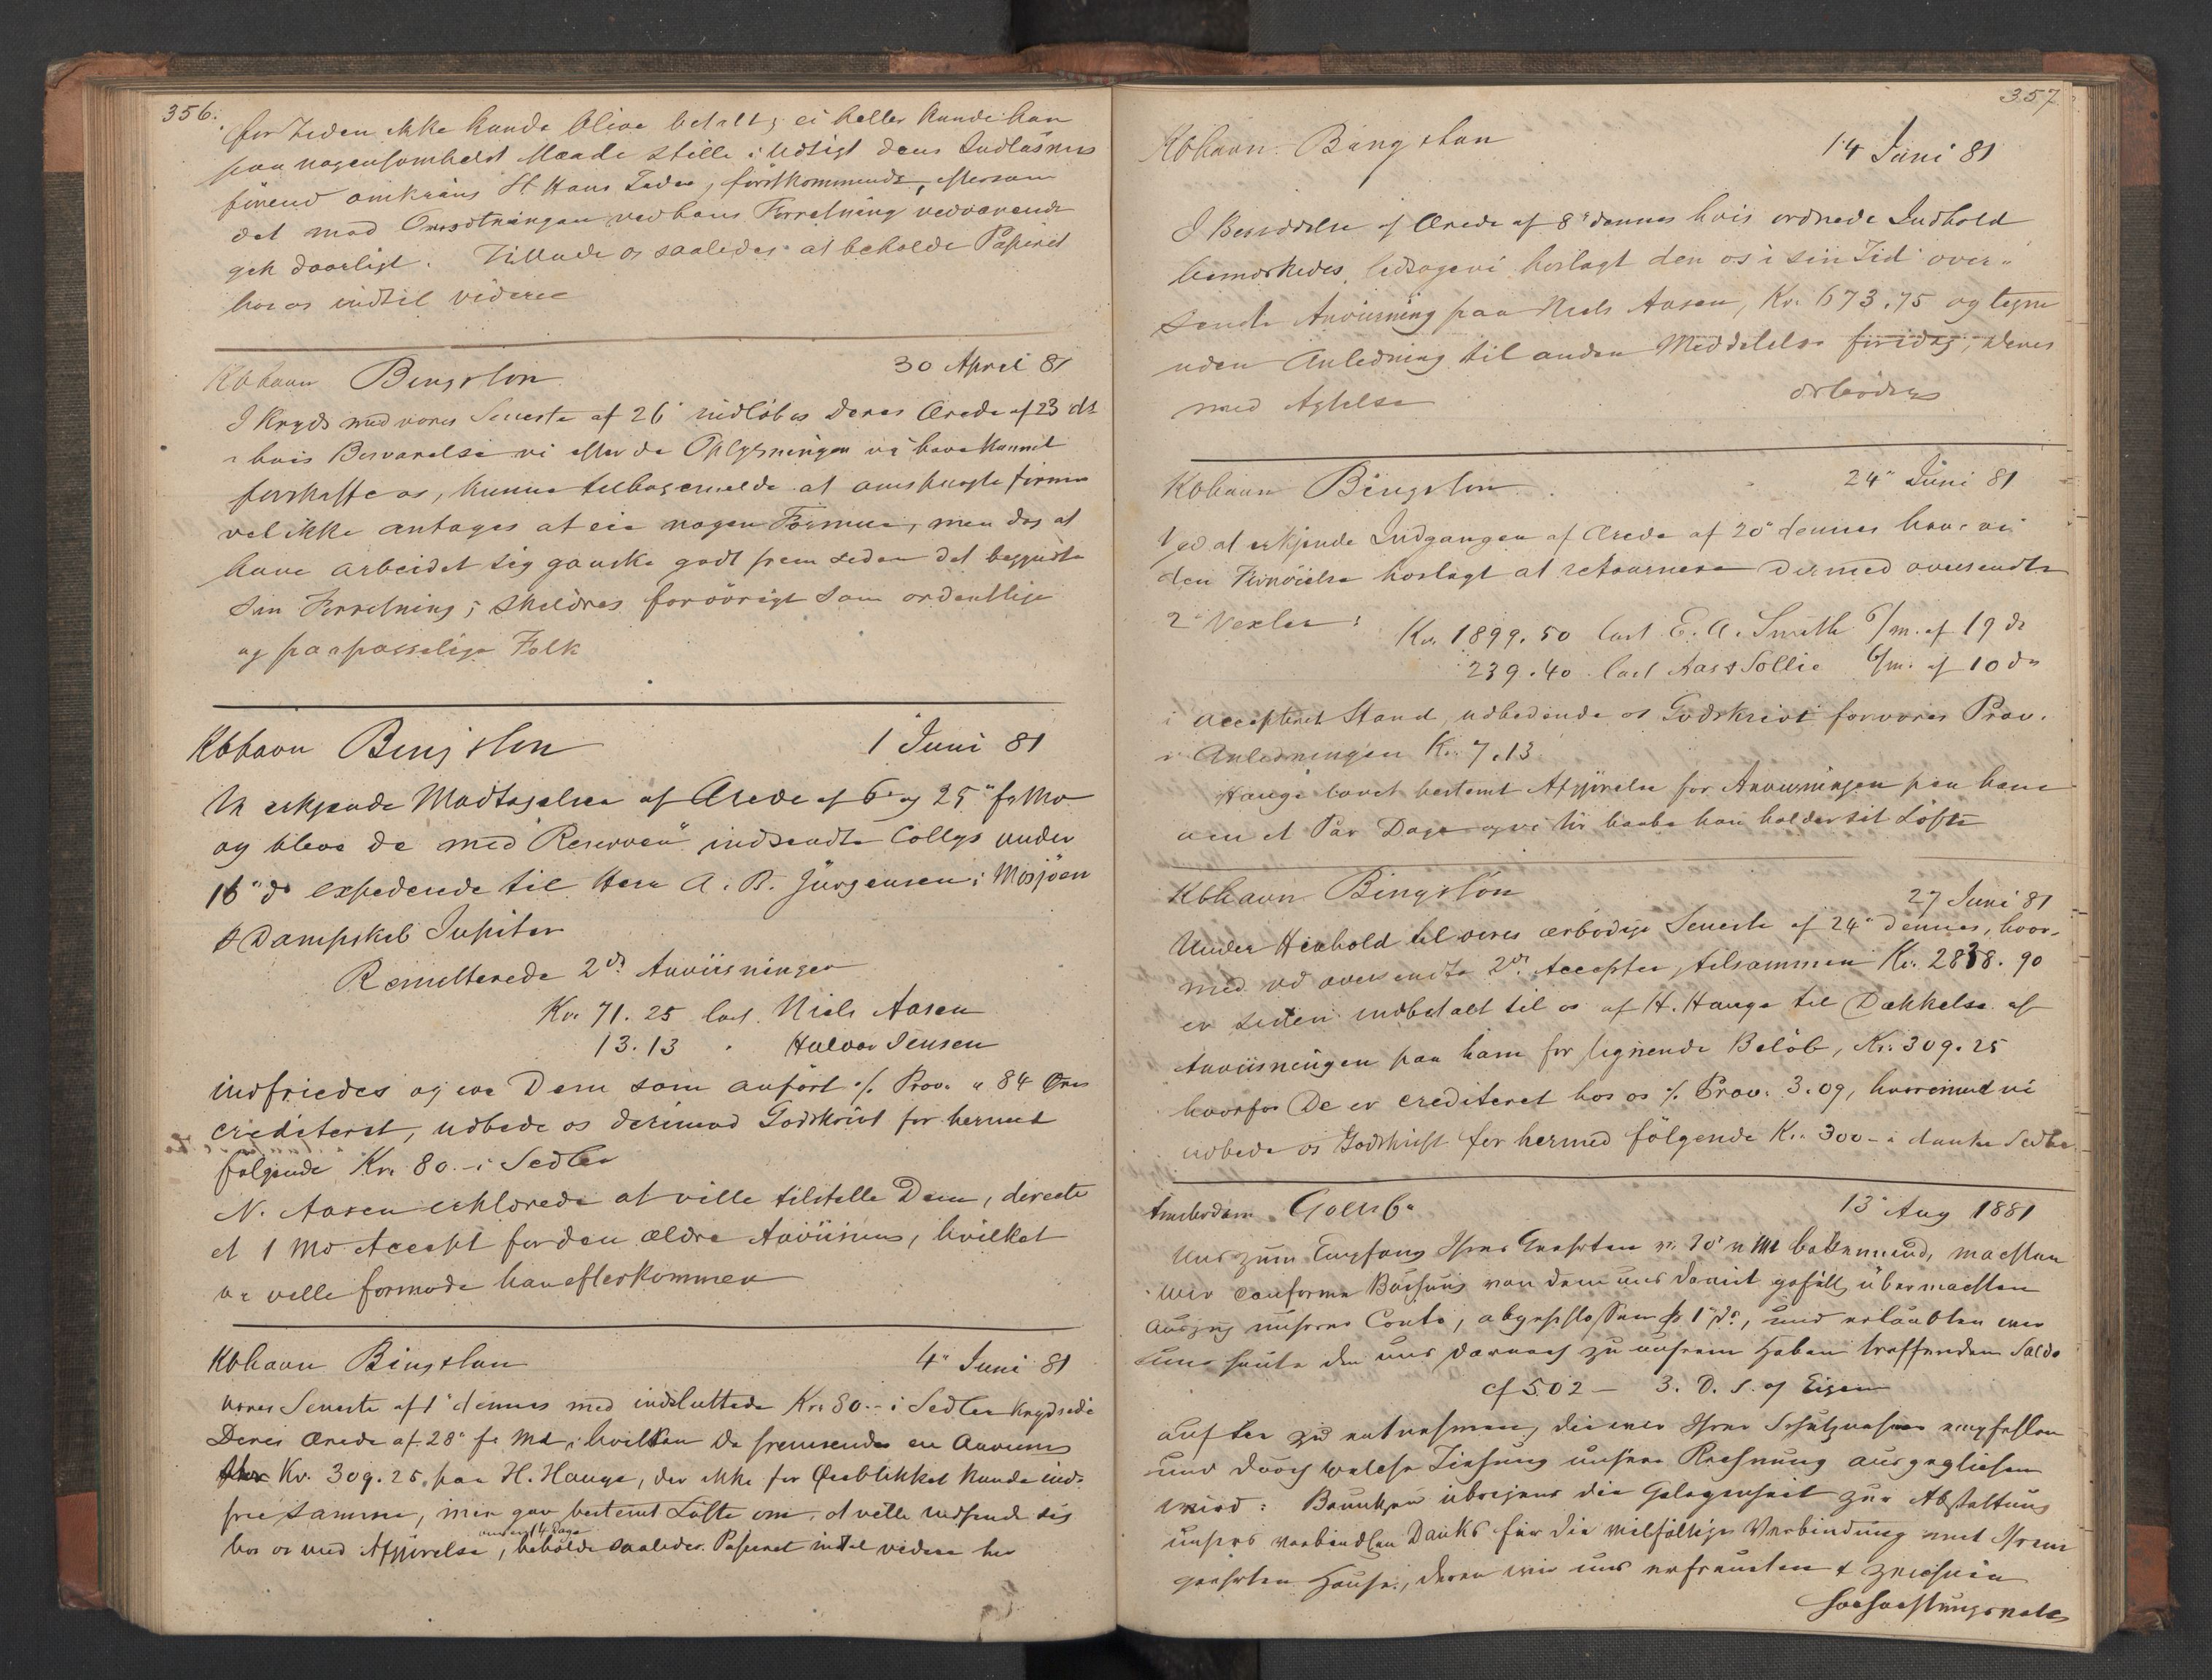 356.
for Tiden ikke kunde blive betalt, ei heller kunde han
paa nogensomhelst Maade stille i Udsigt dens Indløsning
förend omkring St Hans Tider, förstkommende, eftersom
det med Omsætningen ved hans Forretning vedvarende
gik daarligt. Tillade os saaledes at beholde Papiret
hos os indtil videre
Kbhavn 30 April 81
I Kryds med vores Seneste af 26' indløb os Deres Ærede af 23 ds
i hvis Besvarelse vi efter de Oplysninger vi have kunnet
forskaffe os, kunne tilbagemelde at omspurgte Firma
vel ikke antages at eie nogen Formue, men dog at
have arbeidet sig ganske godt frem siden det begyndte
sin Forretning; skildres forövrigt som ordentlige
og paapasselige Folk
Kbhavn 1 Juni 81
Vi erkjende Modtagelsen af Ærede af 6' og 25" f. Md
og bleve de med "Reserven" indsendte Collys under
16" ds expederede til Herr A. B. Jürgensen i Mosjöen
p Dampskib Jupiter
Remitterede 2de Anviisninger
Kr. 71.25 last Niels Aasen
13.13 " Halvor Jensen
indfriedes og ere Dem som anfört ./. Prov. " 84 Öre
crediteret, udbede os derimod Godskrivt for hermed
følgende Kr. 80.- i Sedler
N. Aasen erklærede at ville tilstille Dem, directe
et 1 Md Accept for den ældre Anviisning, hvilket
vi ville formode han efterkommer
Kbhavn 4" Juni 81
Vores Seneste af 1" dennes med indsluttede Kr. 80.- i Sedler krydsede
Deres Ærede af 28" f. Md, i hvilken De fremsendes en Anviisn
Kr. 309.25, paa H. Hauge, der ikke for Øieblikket kunde ind-
frie samme, men gav bestemt Löfte om, at ville indfinde sig
under 14 Dage
hos os med Afgjørelse, beholde saaledes Papiret indtil videre her
357
Kbhavn 14 Juni 81
I Besiddelse af Ærede af 8" dennes hvis ordnede Indhold
bemærkedes, ledsage vi hoslagt den os i sin Tid over-
sendte Anviisning paa Niels Aasen, Kr. 673.75 og tegne
uden Anledning til anden Meddelelse foridag, Deres
med Agtelse ærbødigs
Kbhavn 24" Juni 81
Ved at erkjende Indgangen af Ærede af 20" dennes have vi
den Fornöielse hoslagt at retournere dermed oversendte
2" Vexler:
Kr. 1899.50 last E. A. Smith 6/m. af 19 ds
239.40 last Aas & Sollie 6/m. af 10 ds
i accepteret Stand, udbedende os Godskrivt for vores Prov.
i Anledningen Kr. 7.13
Hauge lovet bestemt Afgjörelse for Anviisningen paa ham
om et Par Dage og vi tör haabe han holder sit Löfte
Kbhavn 27 Juni 81
Under Henhold til vores ærbödige Seneste af 24" dennes, hvor-
med vi oversendte 2de Accepter, tilsammen Kr. 2838.90
er siden indbetalt til os af H. Hauge til Dækkelse af
Anviisningen paa ham for lignende Belöb, Kr. 309.25
hvorfor De er crediteret hos os ./. Prov. 3.09, hvorimod vi
udbede os Godskrift for hermed følgende Kr. 300- i danske Sedler
Amsterdam 13" Aug 1881
Uns zum Empfang Ihres Geehrten v. 30' v Mt bekennend, machten
wir conforme Buchung von dem uns damit gefällg übermachten
Auszug unseres Conto, abgeschlossen p 1" ds, und erlaubten wir
uns heute den uns darnach zu unserem Haben treffenden Saldo
cf 502 - 3. D. S. of Eigen
auf Sie zu entnehmen, die wir Ihrer Schutznahme empfehlen
und durch welche Ziehung unsere Rechnung ausgeglichen
wird: Benutzen übrigens die Gelegenheit zur Abstattung
unsers verbindlen Danks für die vielfältige Verbindung mit Ihrem
geehrten Hause, deren wir uns erfreuten & zeichnen
Hochachtungsvoll